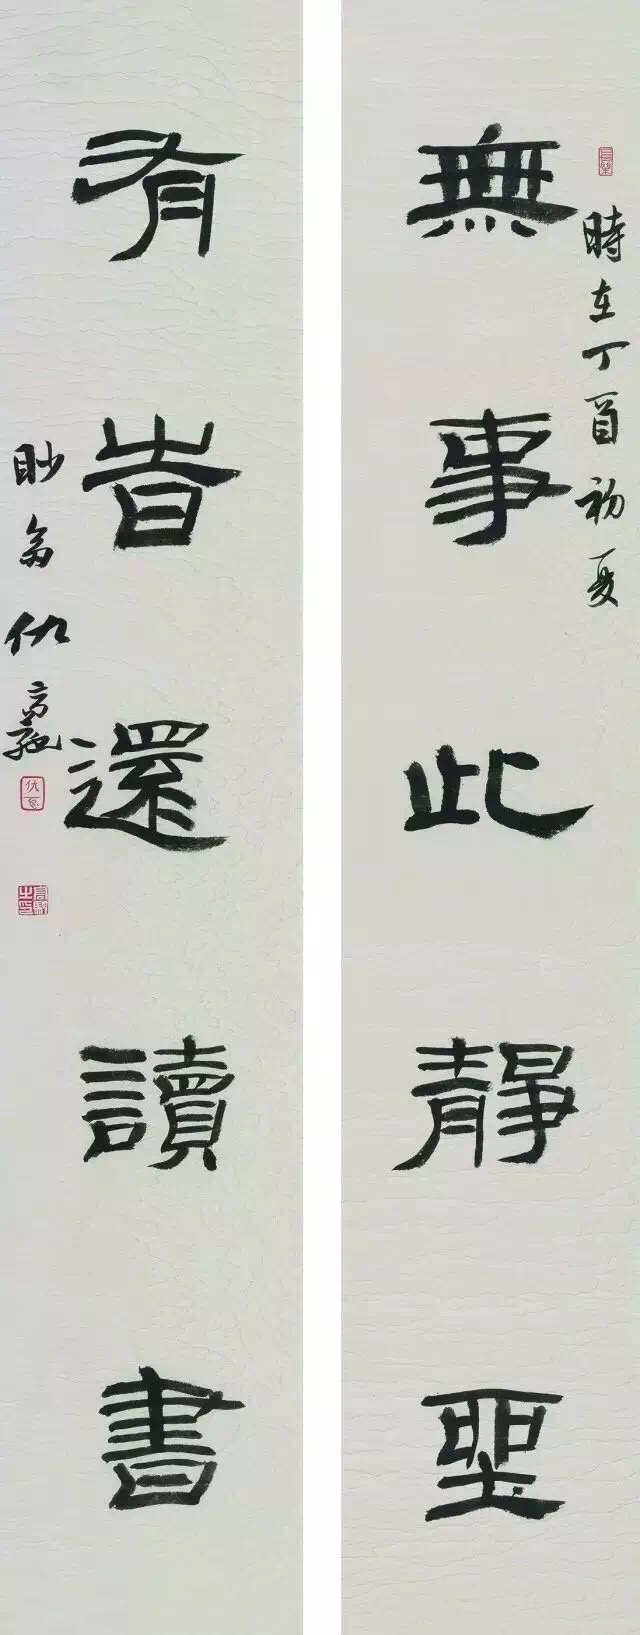 時在丁酉初夏
無事此靜坐
有旹還讀書
眇翁仇高馳